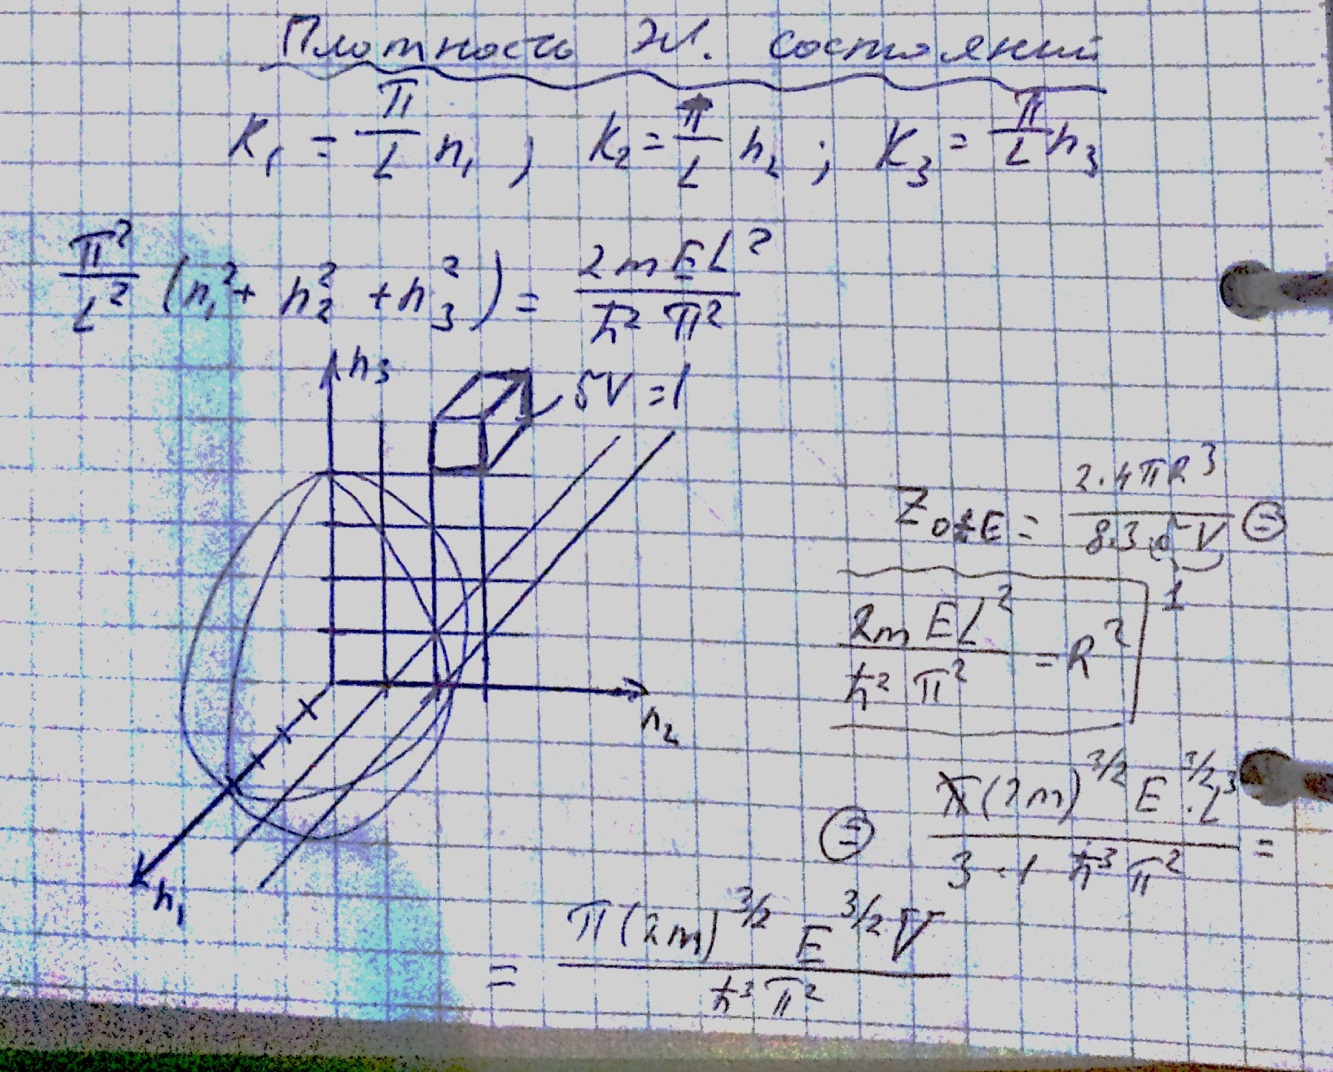 Плотность эл. состояний
K₁ = π/L n₁ ; K₂ = π/L n₂ ; K₃ = π/L n₃
π²/L² (n₁² + n₂² + n₃²) = 2mEL²/ħ²π²
n₃
δV = 1
n₂
n₁
= 2·4πR³/8·3·δV =
1
2mEL²/ħ²π² = R²
= π(2m)^3/2 E^3/2·L³/3·1 ħ³π² =
= π(2m)^3/2 E^3/2 V/ħ³π²